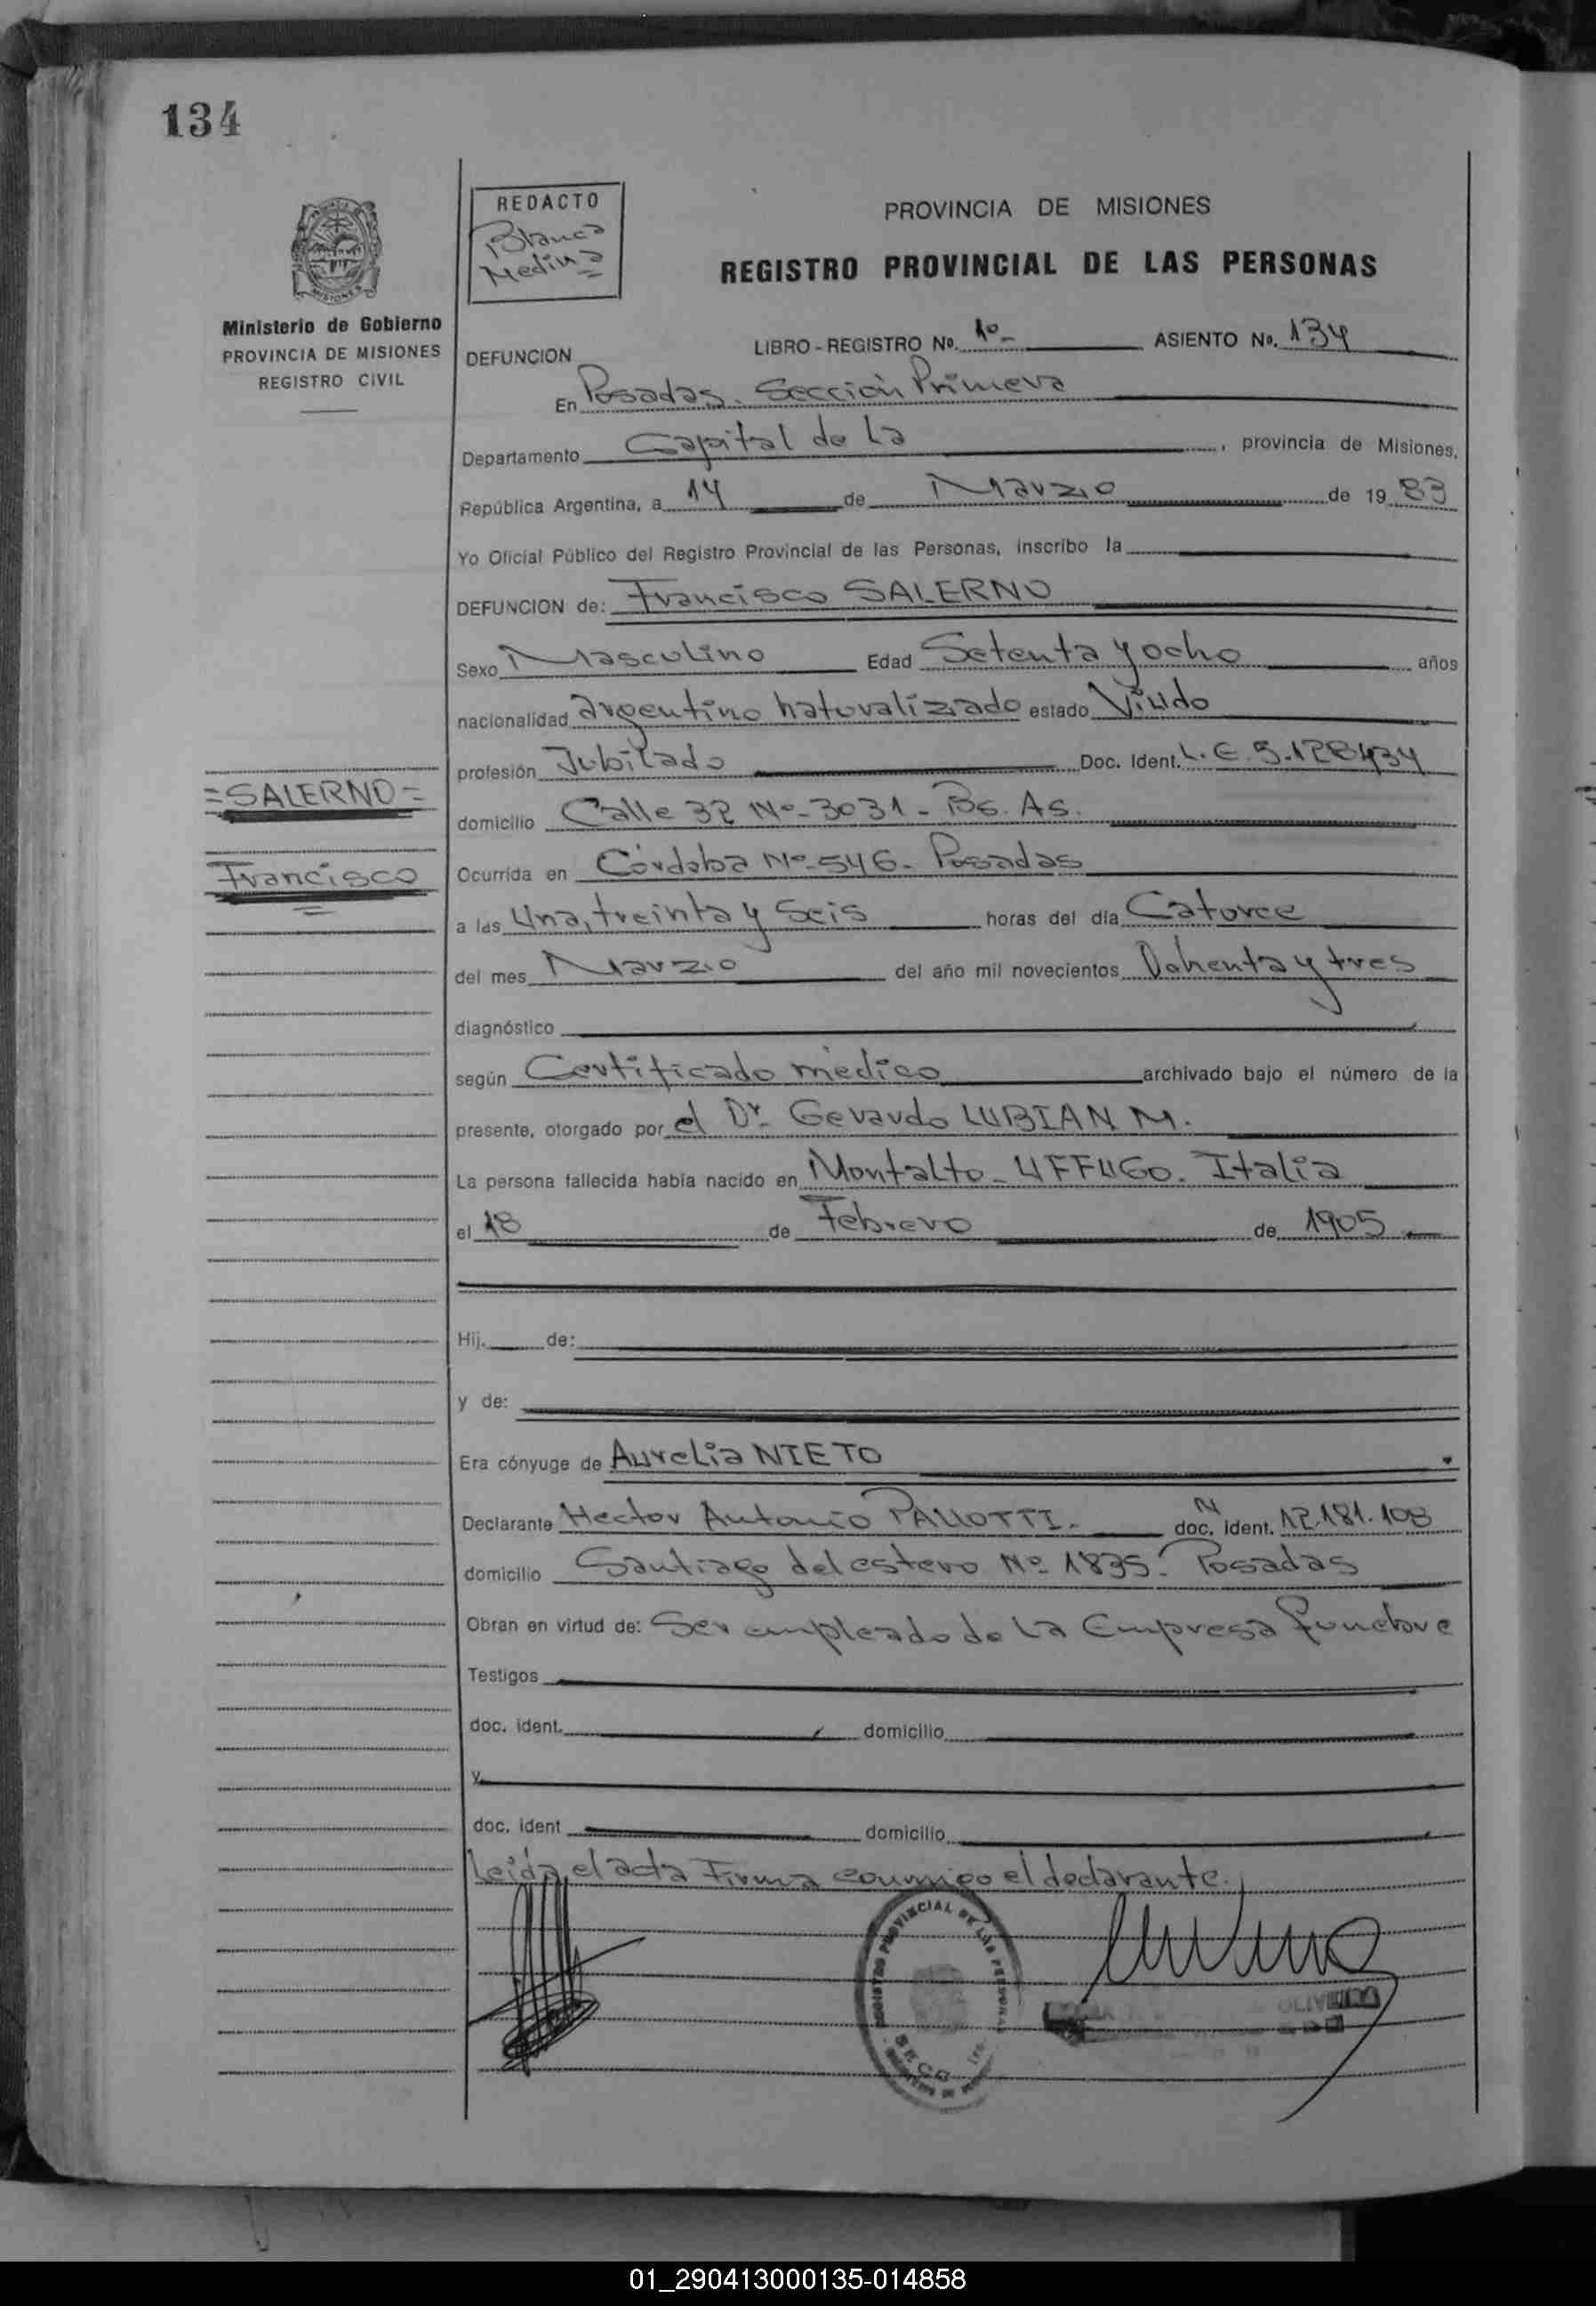 134
REDACTO
Blanca
Medina
PROVINCIA DE MISIONES
REGISTRO PROVINCIAL DE LAS PERSONAS
MISIONES
Ministerio de Gobierno
PROVINCIA DE MISIONES
REGISTRO CIVIL
DEFUNCION
LIBRO - REGISTRO No. 1º- ASIENTO No. 134
En Posadas. Sección Primera
Departamento Capital de La , provincia de Misiones,
República Argentina, a 14 de Marzo de 19 83
Yo Oficial Público del Registro Provincial de las Personas, inscribo la
DEFUNCION de: Francisco SALERNO
Sexo Masculino Edad Setenta y ocho años
nacionalidad argentino naturalizado estado Viudo
profesión Jubilado Doc. Ident. L.E. 5.128.434
=SALERNO=
domicilio Calle 32 Nº-3031- Bs. As.
Francisco
Ocurrida en Córdoba Nº-546- Posadas
a las Una, treinta y Seis horas del día Catorce
del mes Marzo del año mil novecientos Ochenta y tres
diagnóstico
según Certificado médico archivado bajo el número de la
presente, otorgado por el Dr. Gerardo LUBIAN M.
La persona fallecida había nacido en Montalto- UFFUGO. Italia
el 18 de Febrero de 1905
Hij. de:
y de:
Era cónyuge de Aurelia NIETO
Declarante Hector Antonio PALLOTTI. doc. N ident. 12.181.108
domicilio Santiago del estero Nº 1835. Posadas
Obran en virtud de: Ser empleado de La Empresa funebre
Testigos
doc. ident. domicilio
y
doc. ident domicilio
Leída el acta Firma conmigo el declarante.
REGISTRO PROVINCIAL DE LAS PERSONAS
01_290413000135-014858